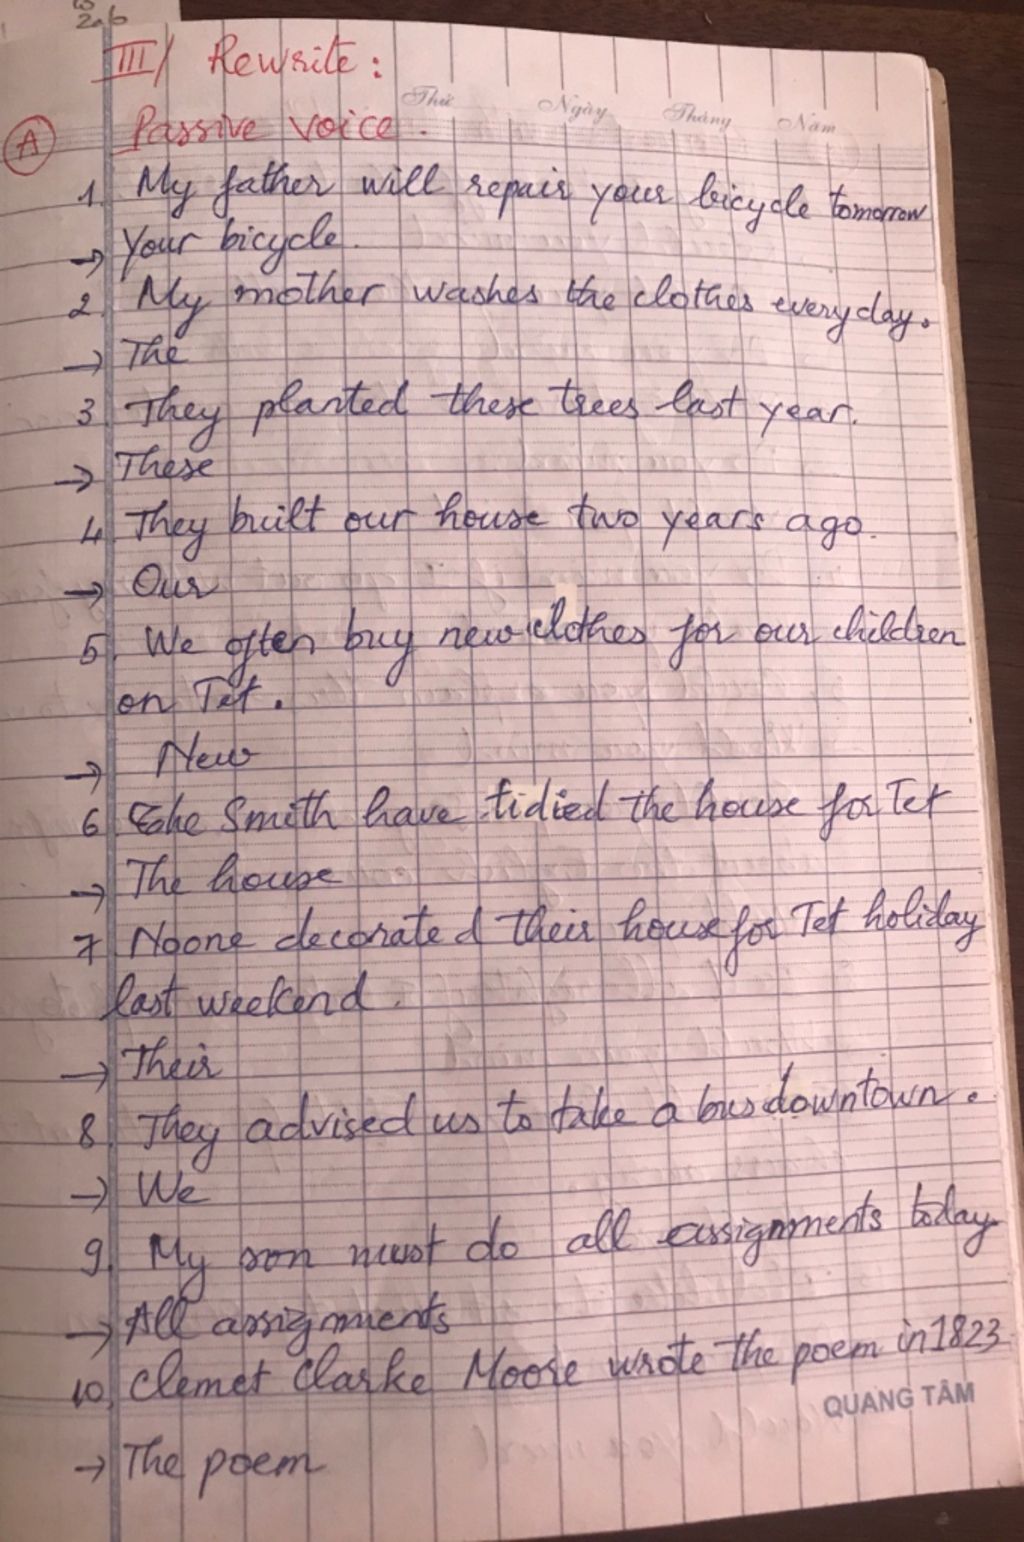 2a6
III/ Rewrite:
Thứ Ngày Tháng Năm
A Passive voice.
1. My father will repair your bicycle tomorrow
→ Your bicycle.
2. My mother washes the clothes everyday.
→ The
3. They planted these trees last year.
→ These
4. They built our house two years ago.
→ Our
5. We often buy new clothes for our children
on Tet.
→ New
6 The Smith have tidied the house for Tet
→ The house
7. Noone decorated their house for Tet holiday
last weekend.
→ Their
8. They advised us to take a bus downtown.
→ We
9. My son must do all assignments today
→ All assignments
10. Clemet Clarke Moore wrote the poem in 1823
QUANG TÂM
→ The poem